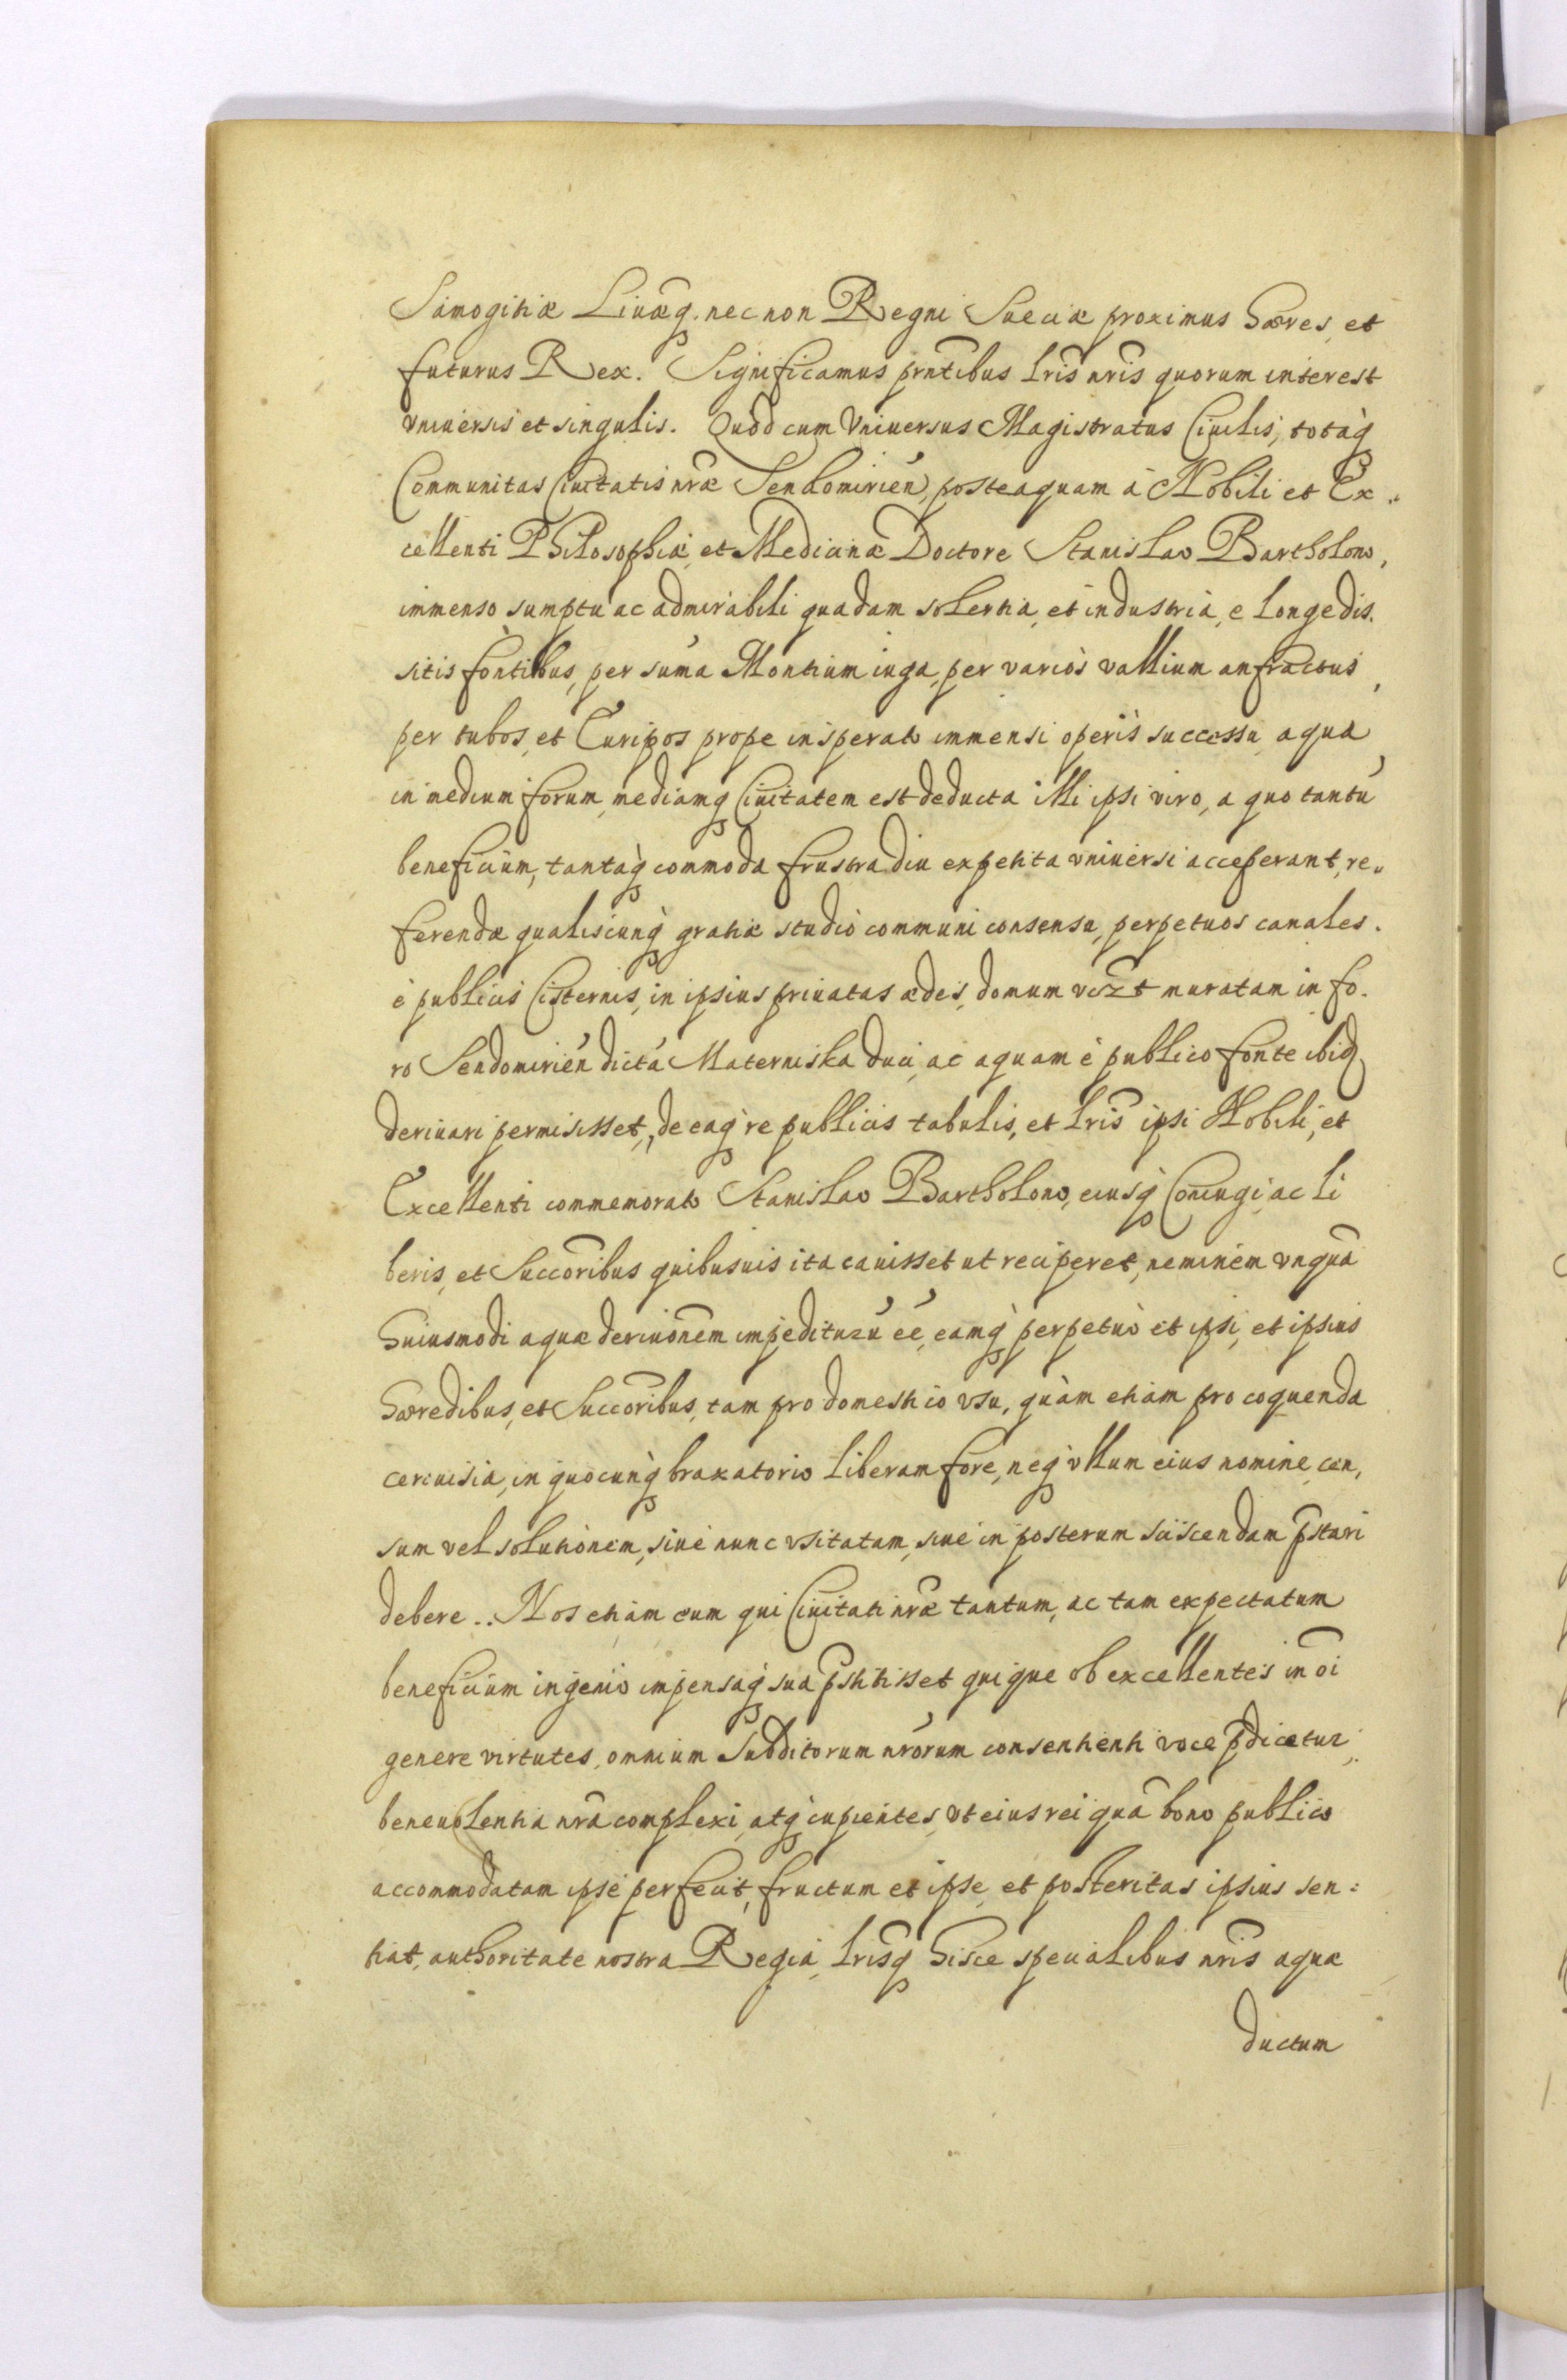 Samogitiæ Liuæq. nec non Regni Sueciæ proximus hæres, et
futurus Rex. Significamus prntibus lris nris quorum interest
vniuersis et singulis. Quod cum Vniuersus Magistratus Ciuilis, totaq
Communitas Ciuitatis nræ Sendomirien, posteaquam à Nobili et Ex..
cellenti Philosophiæ, et Medicinæ Doctore Stanislao Bartholono,
immenso sumptu ac admirabili quadam solertia, et industria, e longe dis.
sitis fontibus, per suma Montium iuga, per varios vallium anfractus,
per tubos, et Euripos prope insperato immensi operis successu aqua
in medium forum, mediamq Ciuitatem est deducta illi ipsi viro, a quo tantu
beneficium, tantaq commoda frustra diu expetita vniuersi acceperant, re..
ferendæ qualiscunq gratiæ studio communi consensu, perpetuos canales.
è publicis Cisternis, in ipsius priuatas ædes, domum vczt muratam in fo.
ro Sendomirien dicta Materniska duci, ac aquam è publico fonte ibiq
deriuari permisisset, de eaq re publicis tabulis, et lris ipsi Nobili, et
Excellenti commemorato Stanislao Bartholono, eiusq Coniugi, ac li
beris, et Succoribus quibusuis ita cauisset ut reciperet, neminem vnqua
huiusmodi aquæ deriuonem impedituru ee, eamq perpetuò et ipsi, et ipsius
hæredibus, et Succoribus, tam pro domestico vsu, quàm etiam pro coquenda
cereuisia, in quocunq braxatorio liberam fore, neq vllum eius nomine cen,
sum vel solutionem, siue nunc vsitatam, siue in posterum sciscendam pstari
debere.. Nos etiam eum qui Ciuitati nræ tantum, ac tam expectatum
beneficium ingenio impensaq sua pstitisset quique ob excellentes in oi
genere virtutes, omnium Subditorum nrorum consentienti voce pdicetur,
beneuolentia nra complexi, atq cupientes, vt eius rei qua bono publico
accommodatam ipse perfecit, fructum et ipse, et posteritas ipsius sen:
tiat, authoritate nostra Regia, lrisq hisce specialibus nris aquæ
ductum